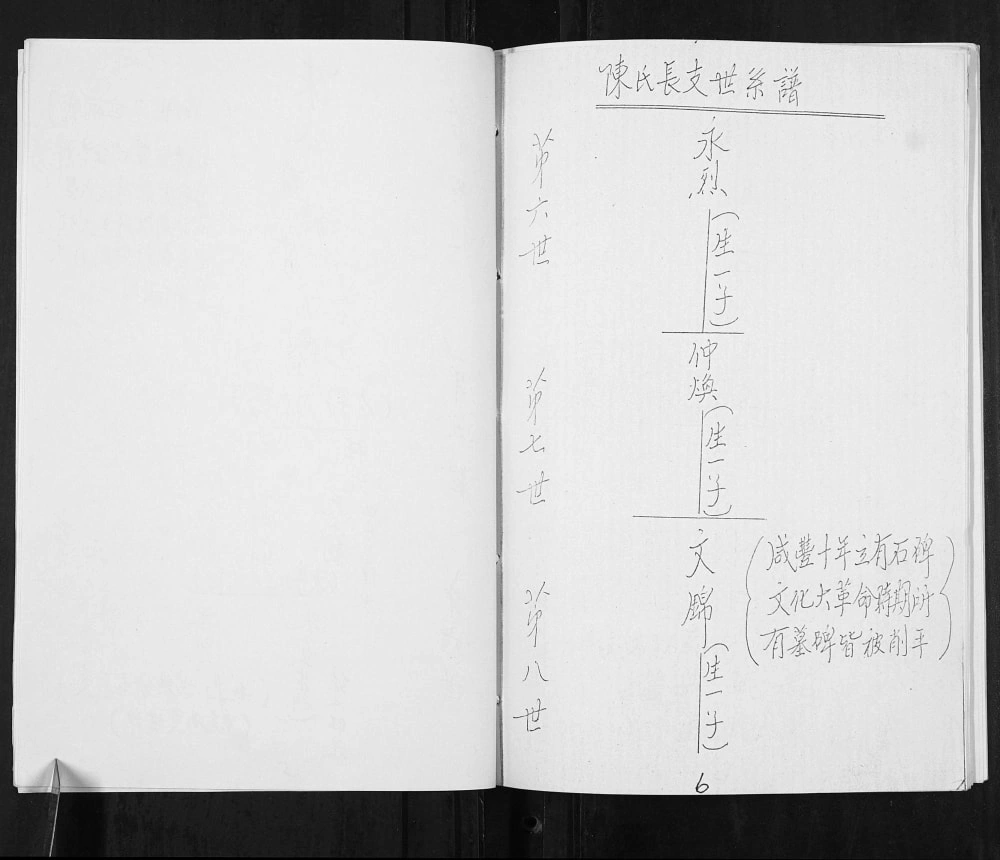 陳氏長支世系譜
第六世
永烈
(生一子)
第七世
仲煥
(生一子)
第八世
文錦
(生一子)
(咸豐十年立有石碑
文化大革命時期所
有墓碑皆被削平)
6